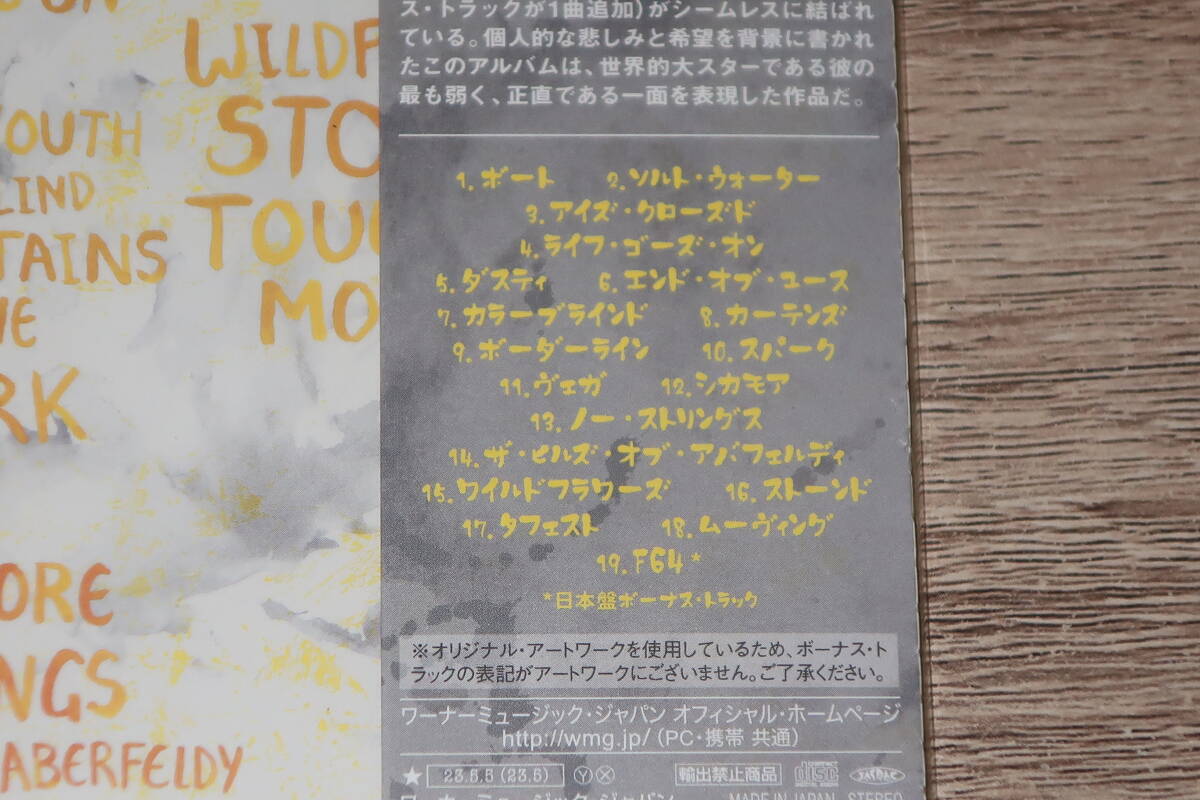 ON
WILDF
OUTH
STO
LIND
TAINS
TOU
MO
RK
ORE
NGS
ABERFELDY
ス・トラックが1曲追加)がシームレスに結ばれ
ている。個人的な悲しみと希望を背景に書かれ
たこのアルバムは、世界的大スターである彼の
最も弱く、正直である一面を表現した作品だ。
1. ボート 2. ソルト・ウォーター
3. アイズ・クローズド
4. ライフ・ゴーズ・オン
5. ダスティ 6. エンド・オブ・ユース
7. カラーブラインド 8. カーテンズ
9. ボーダーライン 10. スパーク
11. ヴェガ 12. シカモア
13. ノー・ストリングス
14. ザ・ヒルズ・オブ・アバフェルディ
15. ワイルドフラワーズ 16. ストーンド
17. タフェスト 18. ムーヴィング
19. F64*
*日本盤ボーナス・トラック
※オリジナル・アートワークを使用しているため、ボーナス・ト
ラックの表記がアートワークにございません。ご了承ください。
ワーナーミュージック・ジャパン オフィシャル・ホームページ
http://wmg.jp/(PC・携帯 共通)
★ 23.5.5 (23.5) Ⓨ Ⓧ 輸出禁止商品 disc JASRAC
ワーナーミュージック・ジャパン MADE IN JAPAN STEREO